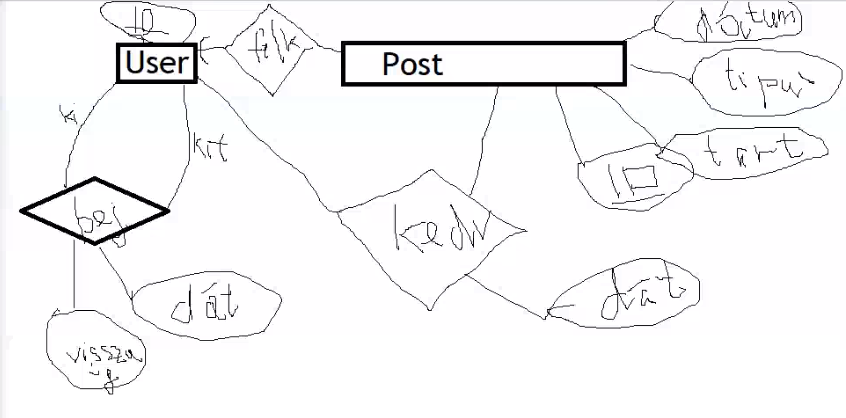 ID
User
felk
Post
dátum
típus
tart
ID
ki
kit
bej
kedv
dát
dát
vissza
ig